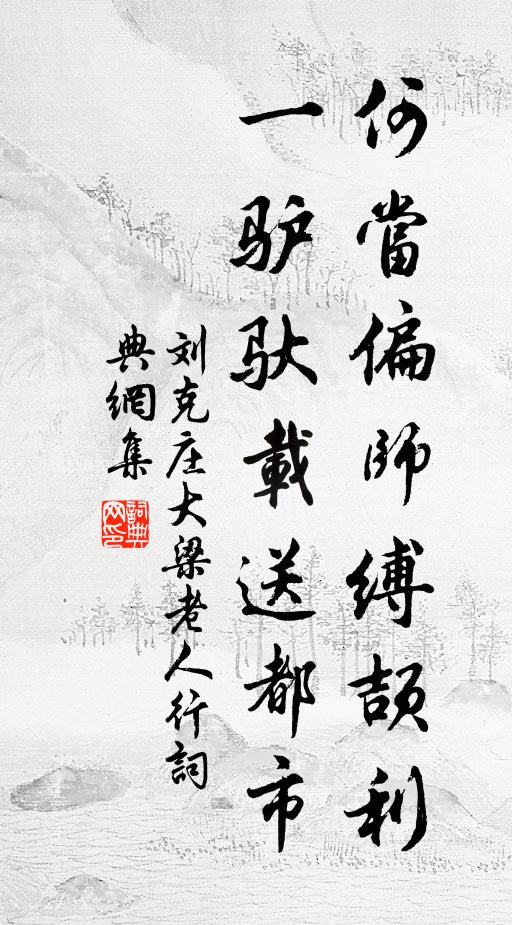 何當偏師縛頡利
一驴驮載送都市
刘克庄大梁老人行詞
典網集
詞典网印